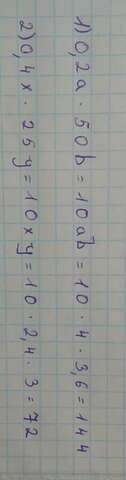 1) 0,2a · 50b = 10ab = 10 · 4 · 3,6 = 144
2) 0,4x · 25y = 10xy = 10 · 2,4 · 3 = 72